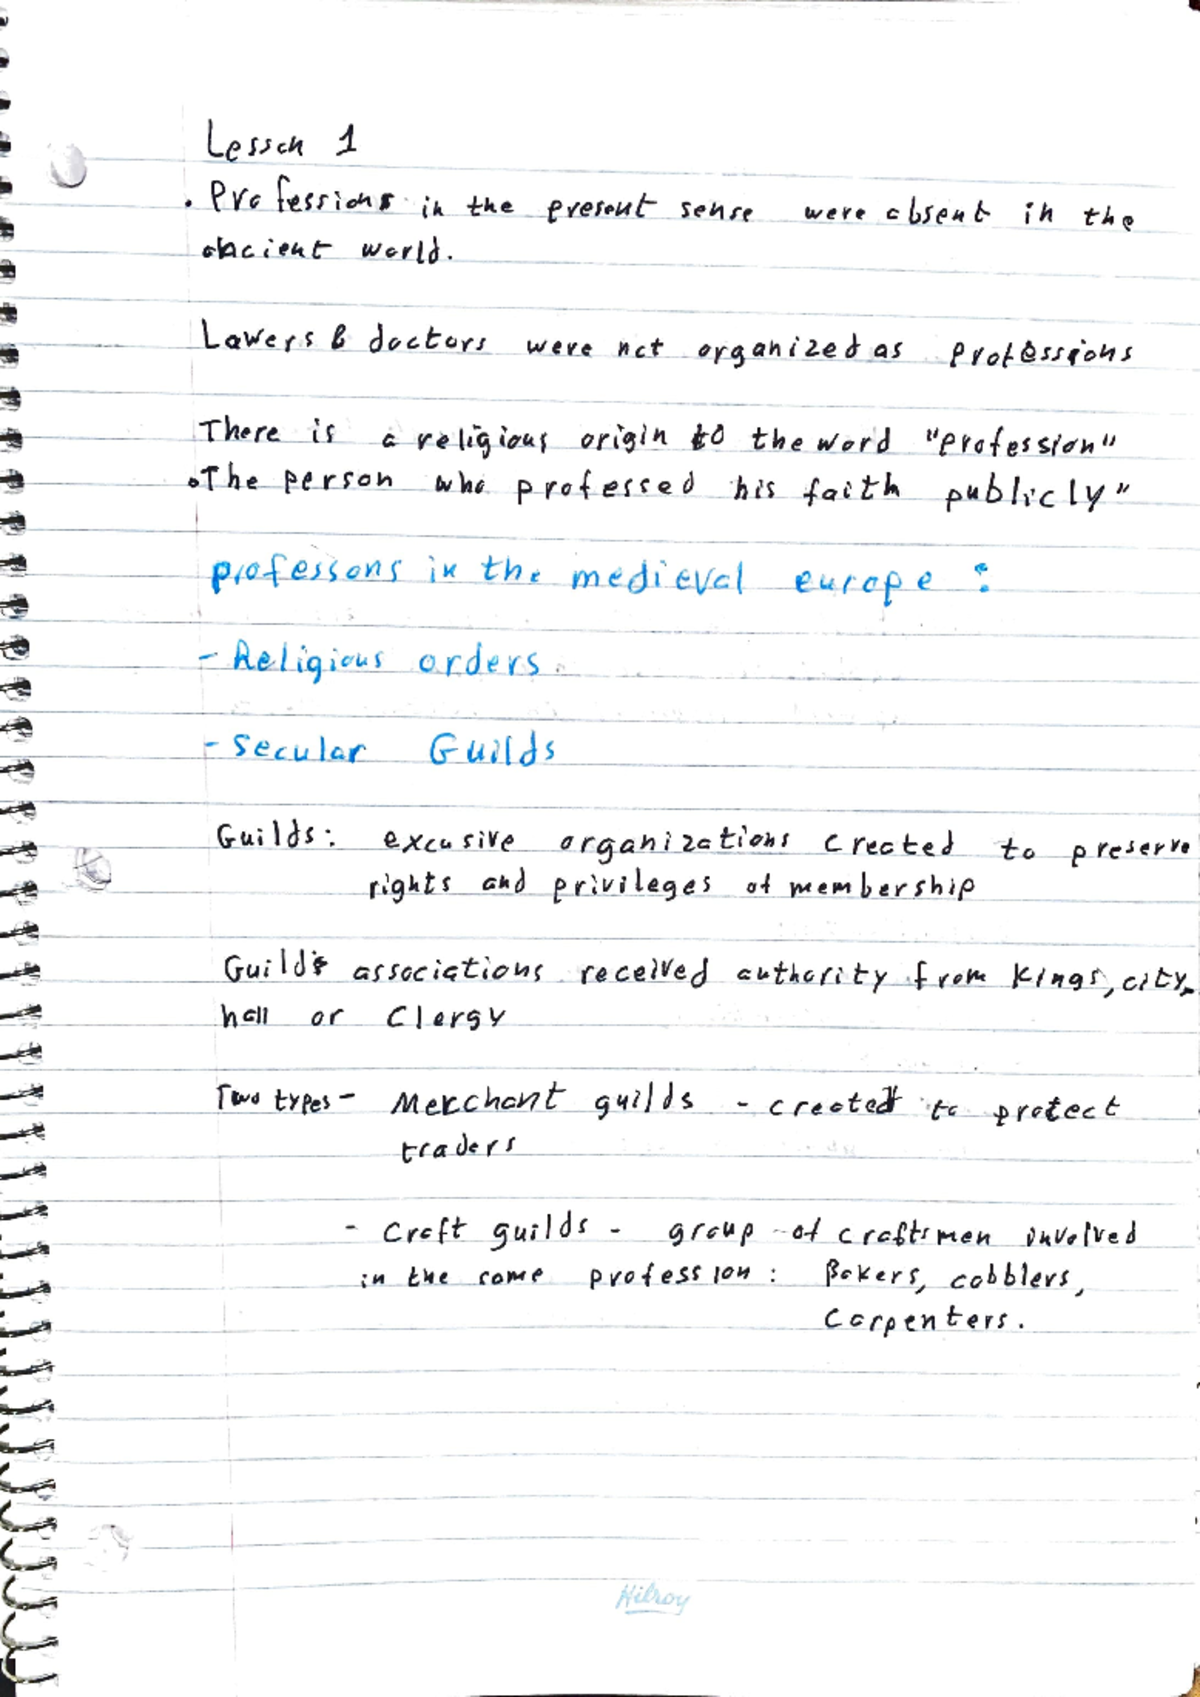 Lesson 1
. Professions in the present sense were absent in the
ancient world.
Lawers & doctors were not organized as professions
There is a religious origin to the word "profession"
.The person who professed his faith publicly"
professons in the medieval europe :
- Religious orders.
- Secular Guilds
Guilds: excusive organizations created to preserve
rights and privileges of membership
Guilds associations received authority from Kings, city
hall or Clergy
Two types - Merchant guilds - created to protect
traders
- Craft guilds - group of craftsmen involved
in the same profession : Bakers, cobblers,
Carpenters.
Hilroy